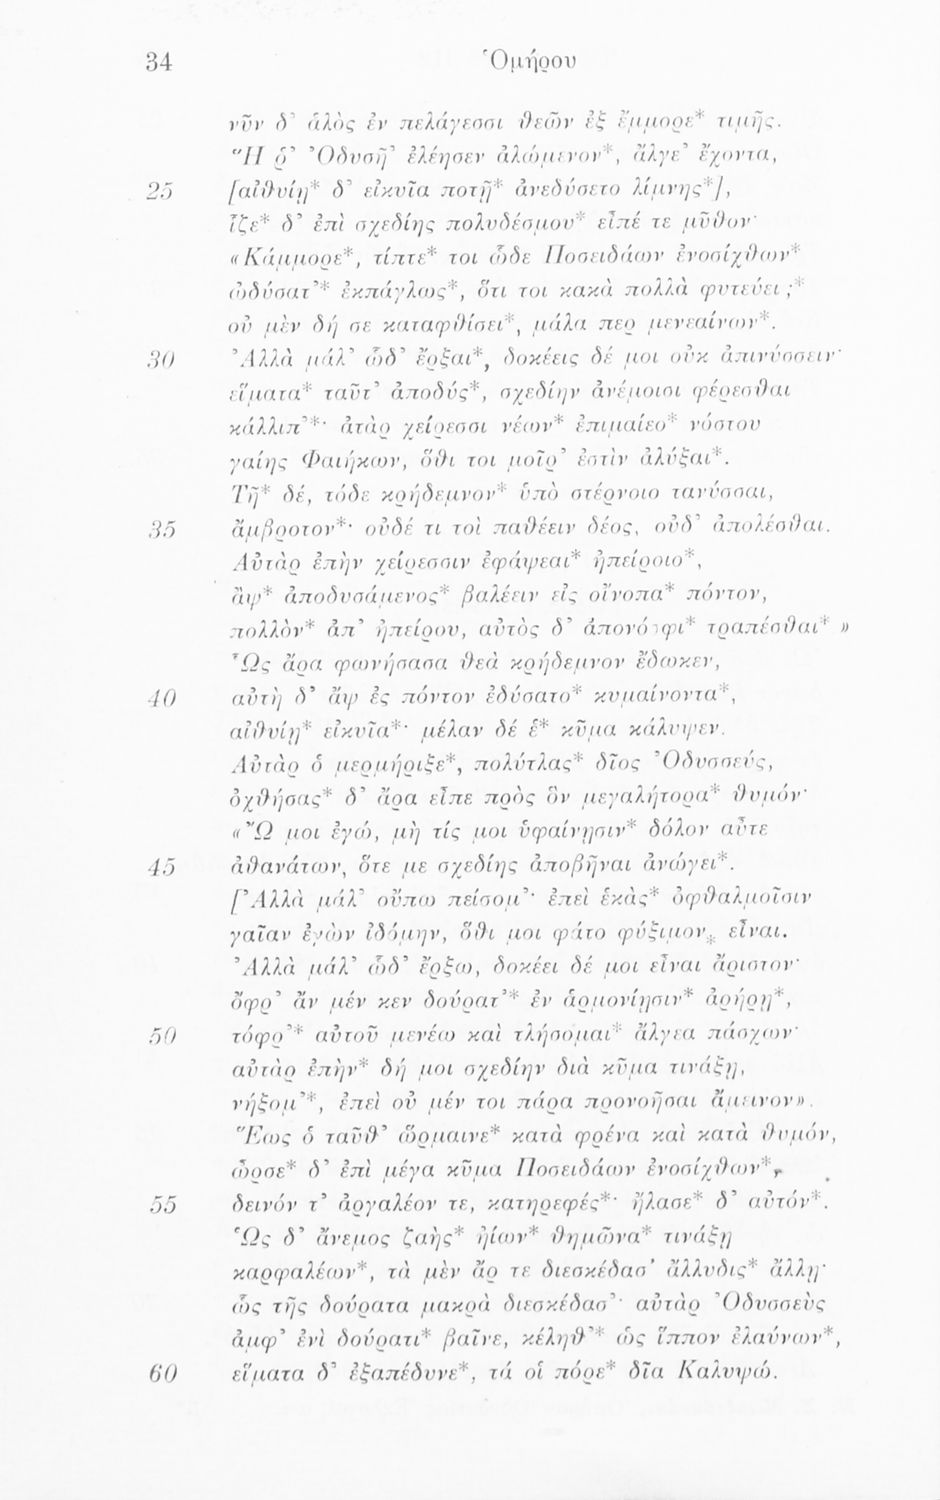 34 Ὁμήρου
νῦν δ' ἁλὸς ἐν πελάγεσσι θεῶν ἒξ ἔμμορε* τιμῆς.
Ἥ ῥ' Ὀδυσῆ' ἐλέησεν ἀλώμενον*, ἄλγε' ἔχοντα,
25 [αἰθυίῃ* δ' εἰκυῖα ποτῇ* ἀνεδύσετο λίμνης*],
ἷζε* δ' ἐπὶ σχεδίης πολυδέσμου* εἶπέ τε μῦθον·
«Κάμμορε*, τίπτε* τοι ὧδε Ποσειδάων ἐνοσίχθων*
ὠδύσατ'* ἐκπάγλως*, ὅτι τοι κακὰ πολλὰ φυτεύει;*
οὐ μὲν δή σε καταφθίσει*, μάλα περ μενεαίνων*.
30 Ἀλλὰ μάλ' ὧδ' ἔρξαι*, δοκέεις δέ μοι οὐκ ἀπινύσσειν·
εἵματα* ταῦτ' ἀποδύς*, σχεδίην ἀνέμοισι φέρεσθαι
κάλλιπ'*· ἀτὰρ χείρεσσι νέων* ἐπιμαίεο* νόστου
γαίης Φαιήκων, ὅθι τοι μοῖρ' ἐστὶν ἀλύξαι*.
Τῆ* δέ, τόδε κρήδεμνον* ὑπὸ στέρνοιο τανύσσαι,
35 ἄμβροτον*· οὐδέ τι τοὶ παθέειν δέος, οὐδ' ἀπολέσθαι.
Αὐτὰρ ἐπὴν χείρεσσιν ἐφάψεαι* ἠπείροιο*,
ἂψ* ἀποδυσάμενος* βαλέειν εἰς οἴνοπα* πόντον,
πολλὸν* ἀπ' ἠπείρου, αὐτὸς δ' ἀπονόσφι* τραπέσθαι* »
Ὣς ἄρα φωνήσασα θεὰ κρήδεμνον ἔδωκεν,
40 αὐτὴ δ' ἂψ ἐς πόντον ἐδύσατο* κυμαίνοντα*,
αἰθυίῃ* εἰκυῖα*· μέλαν δέ ἑ* κῦμα κάλυψεν.
Αὐτὰρ ὁ μερμήριξε*, πολύτλας* δῖος Ὀδυσσεύς,
ὀχθήσας* δ' ἄρα εἶπε πρὸς ὃν μεγαλήτορα* θυμόν·
«Ὤ μοι ἐγώ, μή τίς μοι ὑφαίνῃσιν* δόλον αὖτε
45 ἀθανάτων, ὅτε με σχεδίης ἀποβῆναι ἀνώγει*.
[Ἀλλὰ μάλ' οὔπω πείσομ'· ἐπεὶ ἑκὰς* ὀφθαλμοῖσιν
γαῖαν ἐγὼν ἰδόμην, ὅθι μοι φάτο φύξιμον* εἶναι.
Ἀλλὰ μάλ' ὧδ' ἔρξω, δοκέει δέ μοι εἶναι ἄριστον·
ὄφρ' ἂν μέν κεν δούρατ'* ἐν ἁρμονίῃσιν* ἀρήρῃ*,
50 τόφρ'* αὐτοῦ μενέω καὶ τλήσομαι* ἄλγεα πάσχων·
αὐτὰρ ἐπὴν* δή μοι σχεδίην διὰ κῦμα τινάξῃ,
νήξομ'*, ἐπεὶ οὐ μέν τοι πάρα προνοῆσαι ἄμεινον».
Ἕως ὁ ταῦθ' ὥρμαινε* κατὰ φρένα καὶ κατὰ θυμόν,
ὦρσε* δ' ἐπὶ μέγα κῦμα Ποσειδάων ἐνοσίχθων*,
55 δεινόν τ' ἀργαλέον τε, κατηρεφές*· ἤλασε* δ' αὐτόν*.
Ὡς δ' ἄνεμος ζαὴς* ἠίων* θημῶνα* τινάξῃ
καρφαλέων*, τὰ μὲν ἄρ τε διεσκέδασ' ἄλλυδις* ἄλλῃ·
ὣς τῆς δούρατα μακρὰ διεσκέδασ'· αὐτὰρ Ὀδυσσεὺς
ἀμφ' ἑνὶ δούρατι* βαῖνε, κέληθ'* ὡς ἵππον ἐλαύνων*,
60 εἵματα δ' ἐξαπέδυνε*, τά οἱ πόρε* δῖα Καλυψώ.